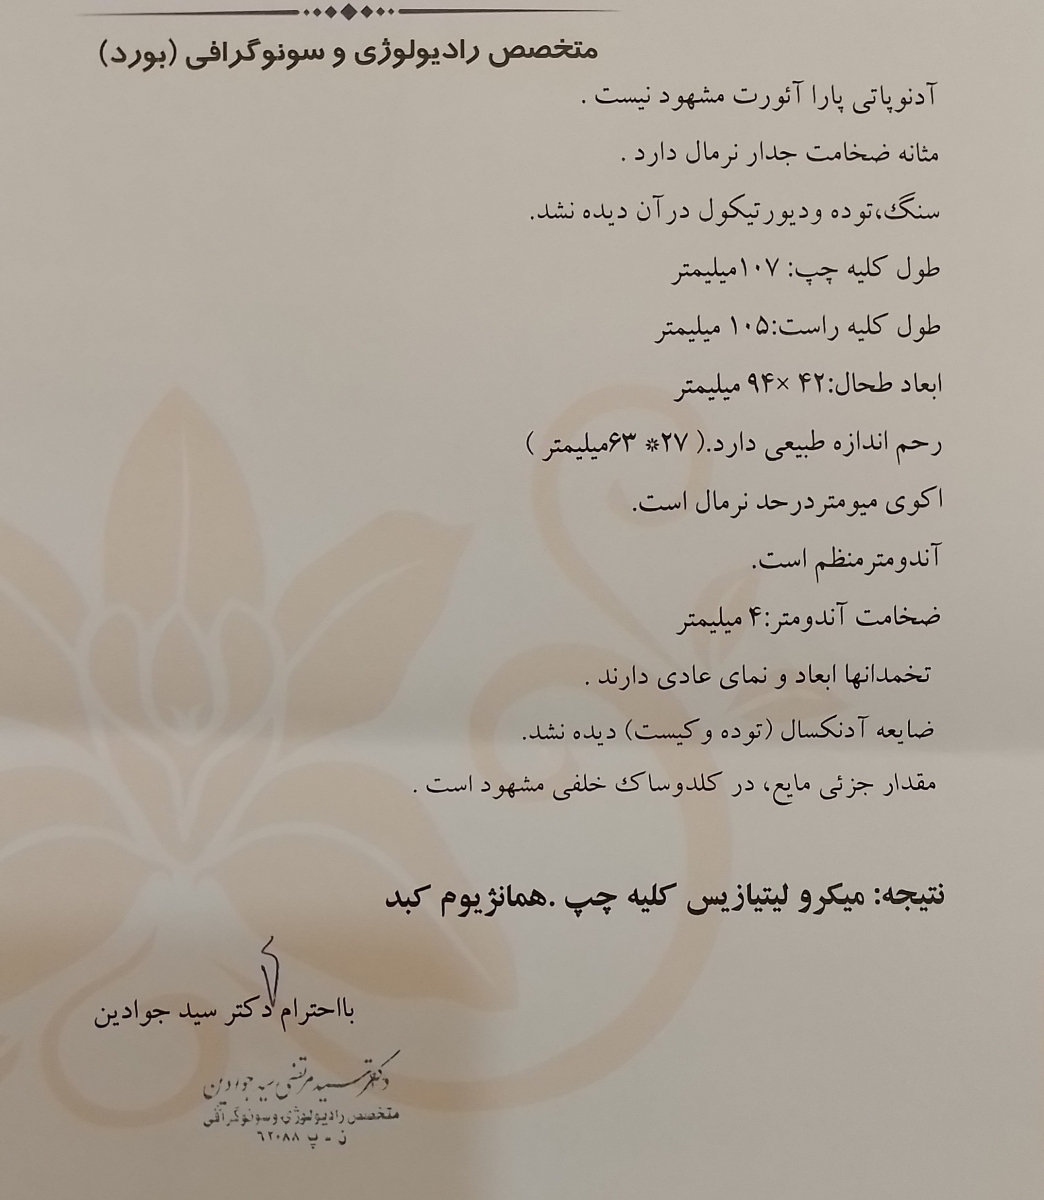 متخصص رادیولوژی و سونوگرافی (بورد)
آدنوپاتی پارا آئورت مشهود نیست .
مثانه ضخامت جدار نرمال دارد .
سنگ،توده ودیورتیکول درآن دیده نشد.
طول کلیه چپ: ۱۰۷میلیمتر
طول کلیه راست:۱۰۵ میلیمتر
ابعاد طحال:۴۲ ×۹۴ میلیمتر
رحم اندازه طبیعی دارد.( ۲۷* ۶۳میلیمتر )
اکوی میومتردرحد نرمال است.
آندومترمنظم است.
ضخامت آندومتر:۴ میلیمتر
تخمدانها ابعاد و نمای عادی دارند .
ضایعه آدنکسال (توده وکیست) دیده نشد.
مقدار جزئی مایع، در کلدوساک خلفی مشهود است .
نتیجه: میکرو لیتیازیس کلیه چپ .همانژیوم کبد
بااحترام دکتر سید جوادین
دکتر سید مرتضی سید جوادین
متخصص رادیولوژی و سونوگرافی
ن - پ ۶۲۰۸۸